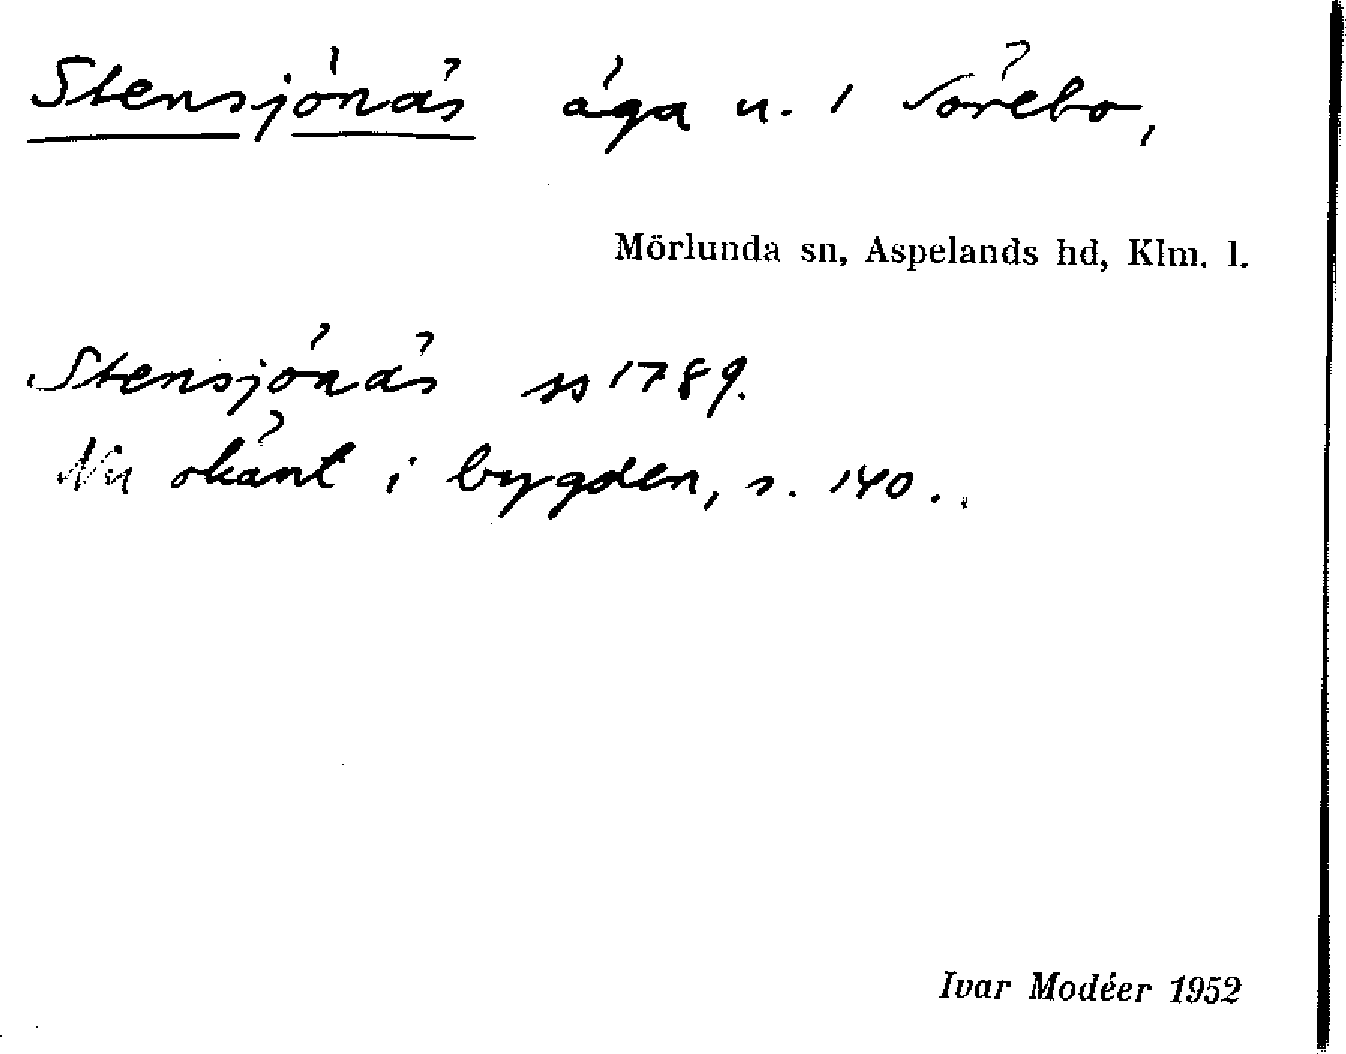 Stensjönäs äga u. 1 Sörebo,
Mörlunda sn, Aspelands hd, Klm. l.
Stensjönäs ss 1789.
Nu okänt i bygden, s. 140.
Ivar Modéer 1952